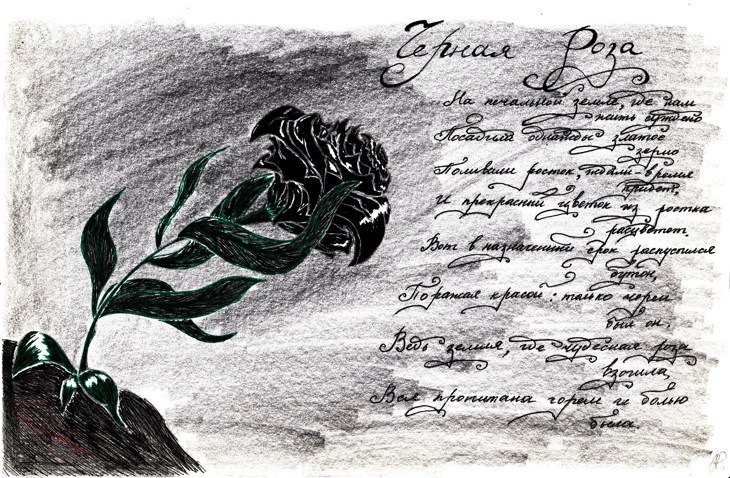 Черная Роза
На печальной земле, где нам
жить суждено
Посадили однажды златое
зерно
Поливали росток, ждали - время
придет,
И прекрасный цветок из ростка
расцветет.
Вот в назначенный срок распустился
бутон,
Поражая красой: только черен
был он.
Ведь земля, где чудесная роза
взошла,
Вся пропитана горем и болью
была.